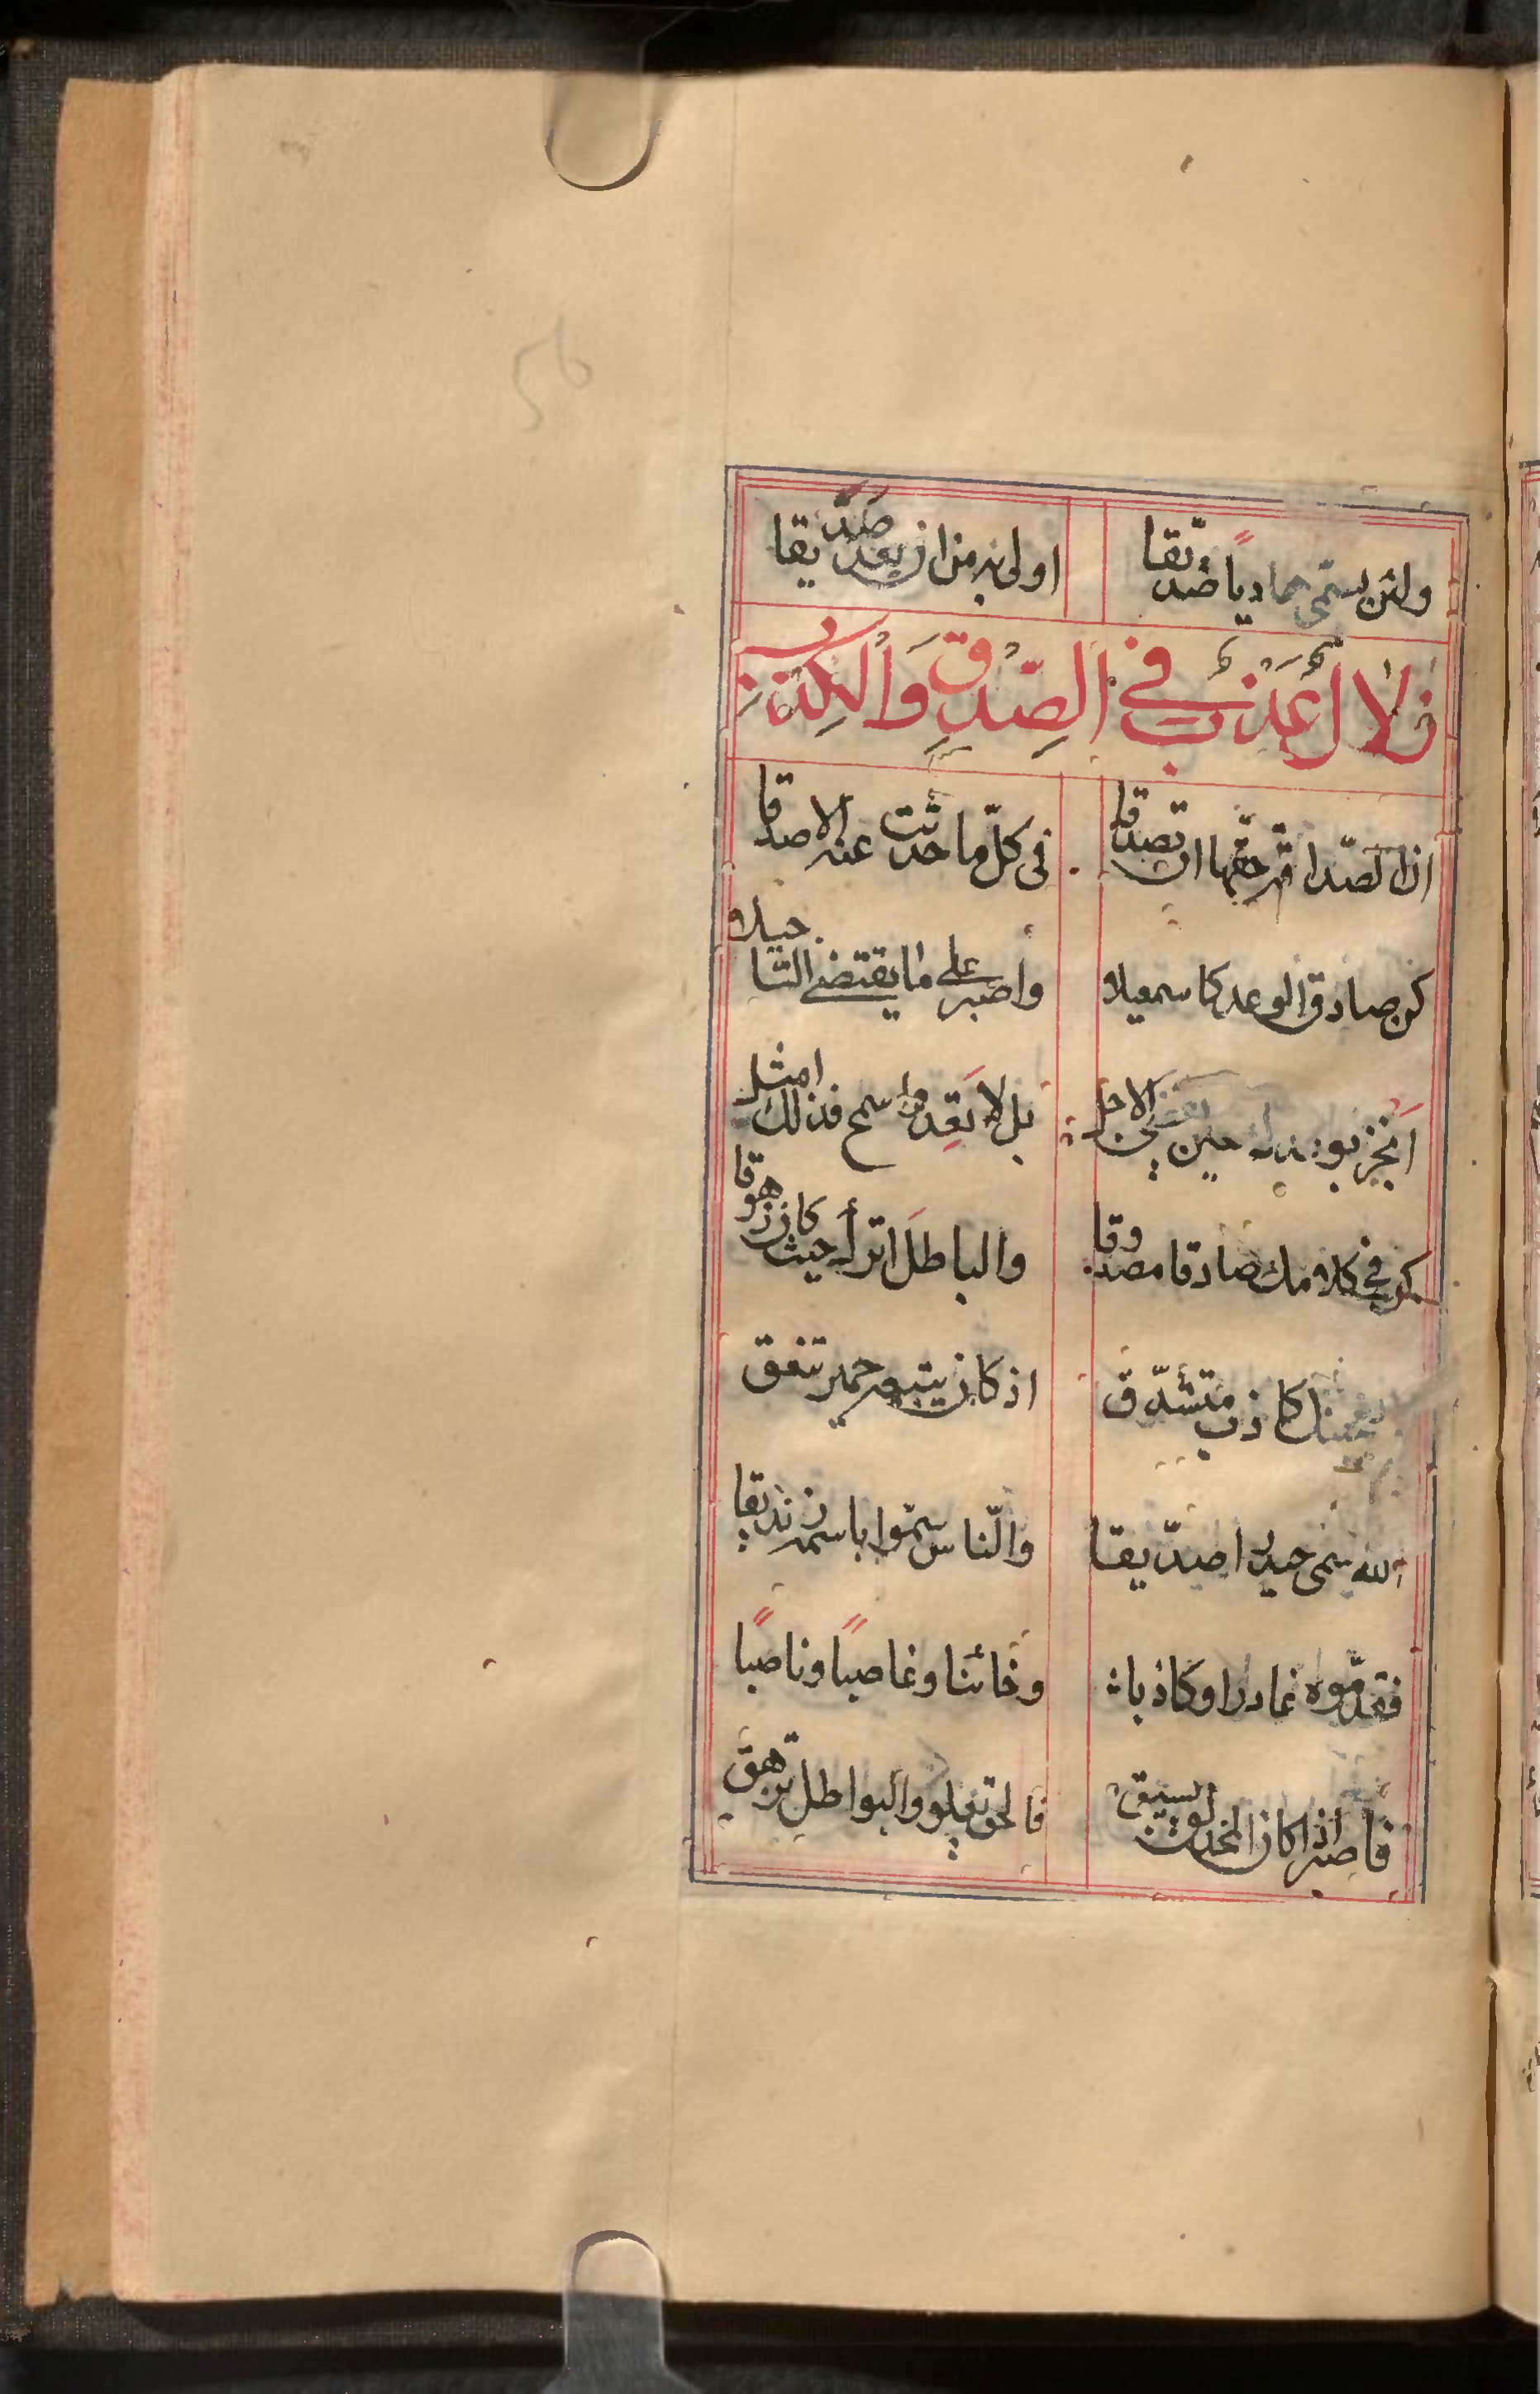 ولئن يسمّى حماديًا صدّيقا
اولى به من ان يعد صدّيقا
زلال عذب في الصِّدق وَالكِذب
ان الصّداقة حقّها ان تصدقا
في كلّ ما حدّثت عنه الاصدقا
كن صادق الوعد كاسمعيلا
واصبر على ما يقتضى التاجيلا
انجز بوعدك حين يقتضى الاجل
بل لا تَعِد واسمح فذلك امثل
كن في كلامك صادقا مصدوقا
والباطل اترك حيث كان زهوقا
كاذب متشدّق
اذ كان يتبعه حمير تنعق
الله سمّى حيدرا صدّيقا
والنّاس سمّوا باسمه زنديقا
فقد سمّوه غادرا وكاذبا
وخائنا وغاصبًا وناصبًا
فاصبر اذا كان المحدث لو يسبق
فالحق تعلو والبواطل تزهق
56